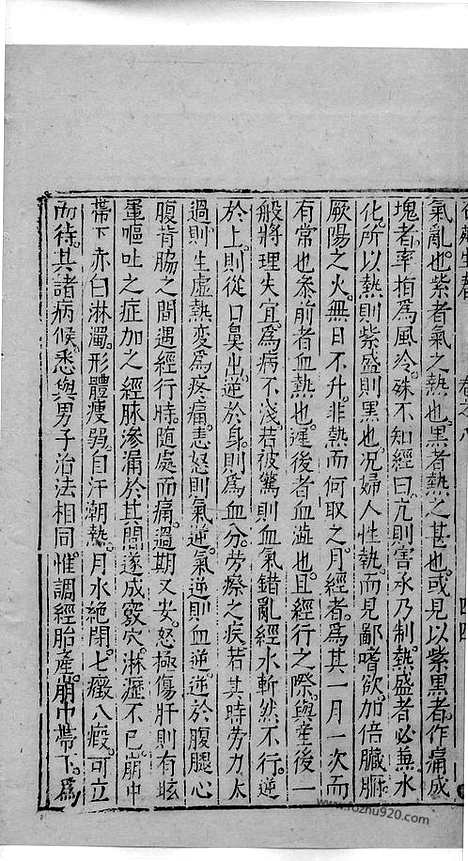 氣亂也紫者氣之熱也黑者熱之甚也或見以紫黑者作痛成
塊者率指爲風冷殊不知經曰亢則害承乃制熱盛者必兼水
化所以熱則紫盛則黑也况婦人性熱而見鄙嗜欲加倍臟腑
厥陽之火無日不升非熱而何取之月經者爲其一月一次而
有常也叅前者血熱也遲後者血澁也且經行之際與産後一
般將理失宜爲病不淺若被驚則血氣錯亂經水斬然不行逆
於上則從口鼻出逆於身則爲血分勞瘵之疾若其時勞力太
過則生虛熱変爲疼痛恚怒則氣逆氣逆則血逆逆於腹腿心
腹背脇之間遇經行時随處而痛過期又安怒極傷肝則有眩
暈嘔吐之症加之經脉滲漏於其間遂成竅穴淋瀝不已崩中
帶下赤白淋濁形體瘦弱自汗潮熱月水絶閉七癥八瘕可立
而待其諸病候悉與男子治法相同惟調經胎產崩中帶下爲
卷之八
www.fozhu920.com